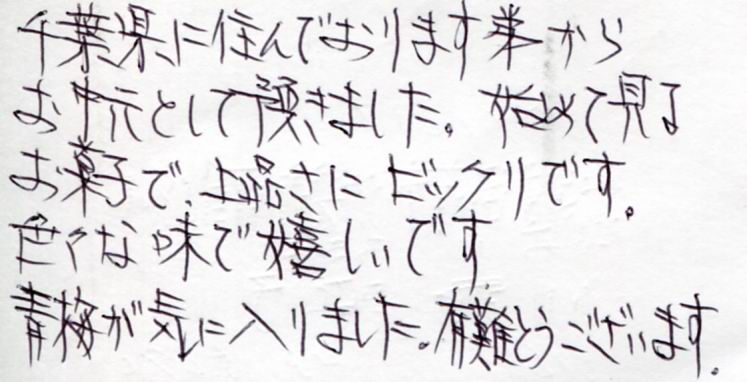 千葉県に住んでおります弟から
お中元として頂きました。始めて見る
お菓子で、上品さにビックリです。
色々な味で嬉しいです
青梅が気に入りました。有難とうございます。